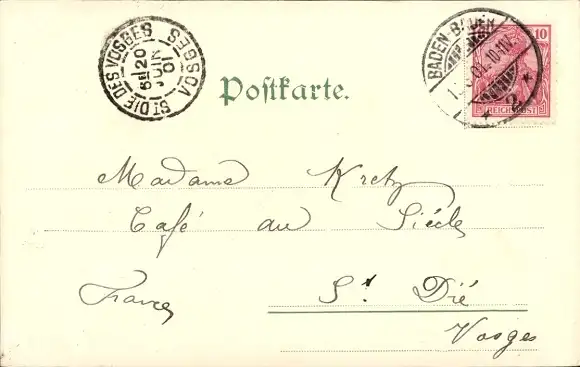 ST DIE DES VOSGES VOSGES
5E 20
JUIN
01
Postkarte.
BADEN-BADEN
10-11V.
* 2. *
10
REICHSPOST
Madame Kretz
Café au Siècle
France St. Dié
Vosges